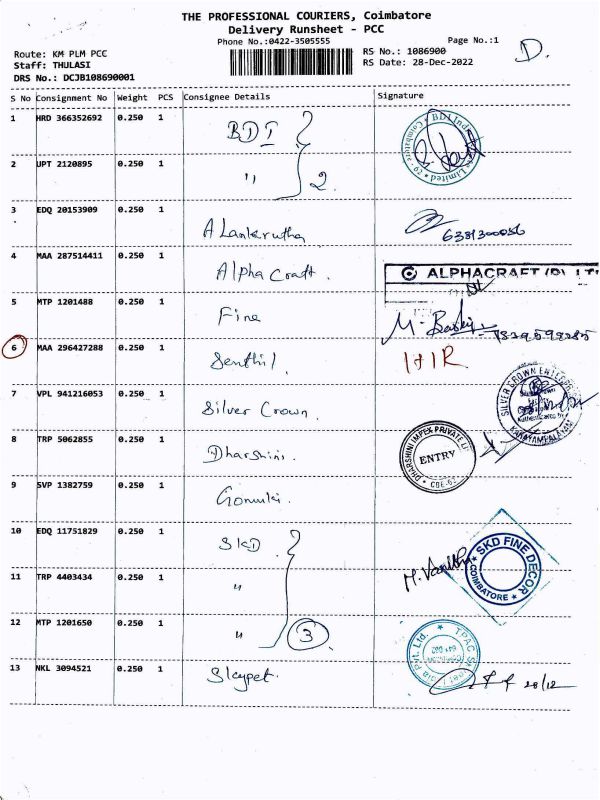 THE PROFESSIONAL COURIERS, Coimbatore
Delivery Runsheet - PCC
Phone No.:0422-3505555 Page No.:1
D.
Route: KM PLM PCC
Staff: THULASI
DRS No.: DCJB108690001
RS No.: 1086900
RS Date: 28-Dec-2022
S No Consignment No Weight PCS Consignee Details Signature
1 HRD 366352692 0.250 1 BDI
2 UPT 2120895 0.250 1 " 2.
3 EDQ 20153909 0.250 1 Alankrutha
4 MAA 287514411 0.250 1 Alpha Craft. ALPHACRAFT (P) LT
5 MTP 1201488 0.250 1 Fine
6 MAA 296427288 0.250 1 Senthil.
7 VPL 941216053 0.250 1 Silver Crown SILVER CROWN ENTERPRI KANIYAMPALAYAM
8 TRP 5062855 0.250 1 Dharshini. DHARSHINI IMPEX PRIVATE ENTRY
9 SVP 1382759 0.250 1
10 EDQ 11751829 0.250 1 SKD
SKD FINE DECOR COIMBATORE
11 TRP 4403434 0.250 1 "
12 MTP 1201650 0.250 1 " 3
13 NKL 3094521 0.250 1 28/12